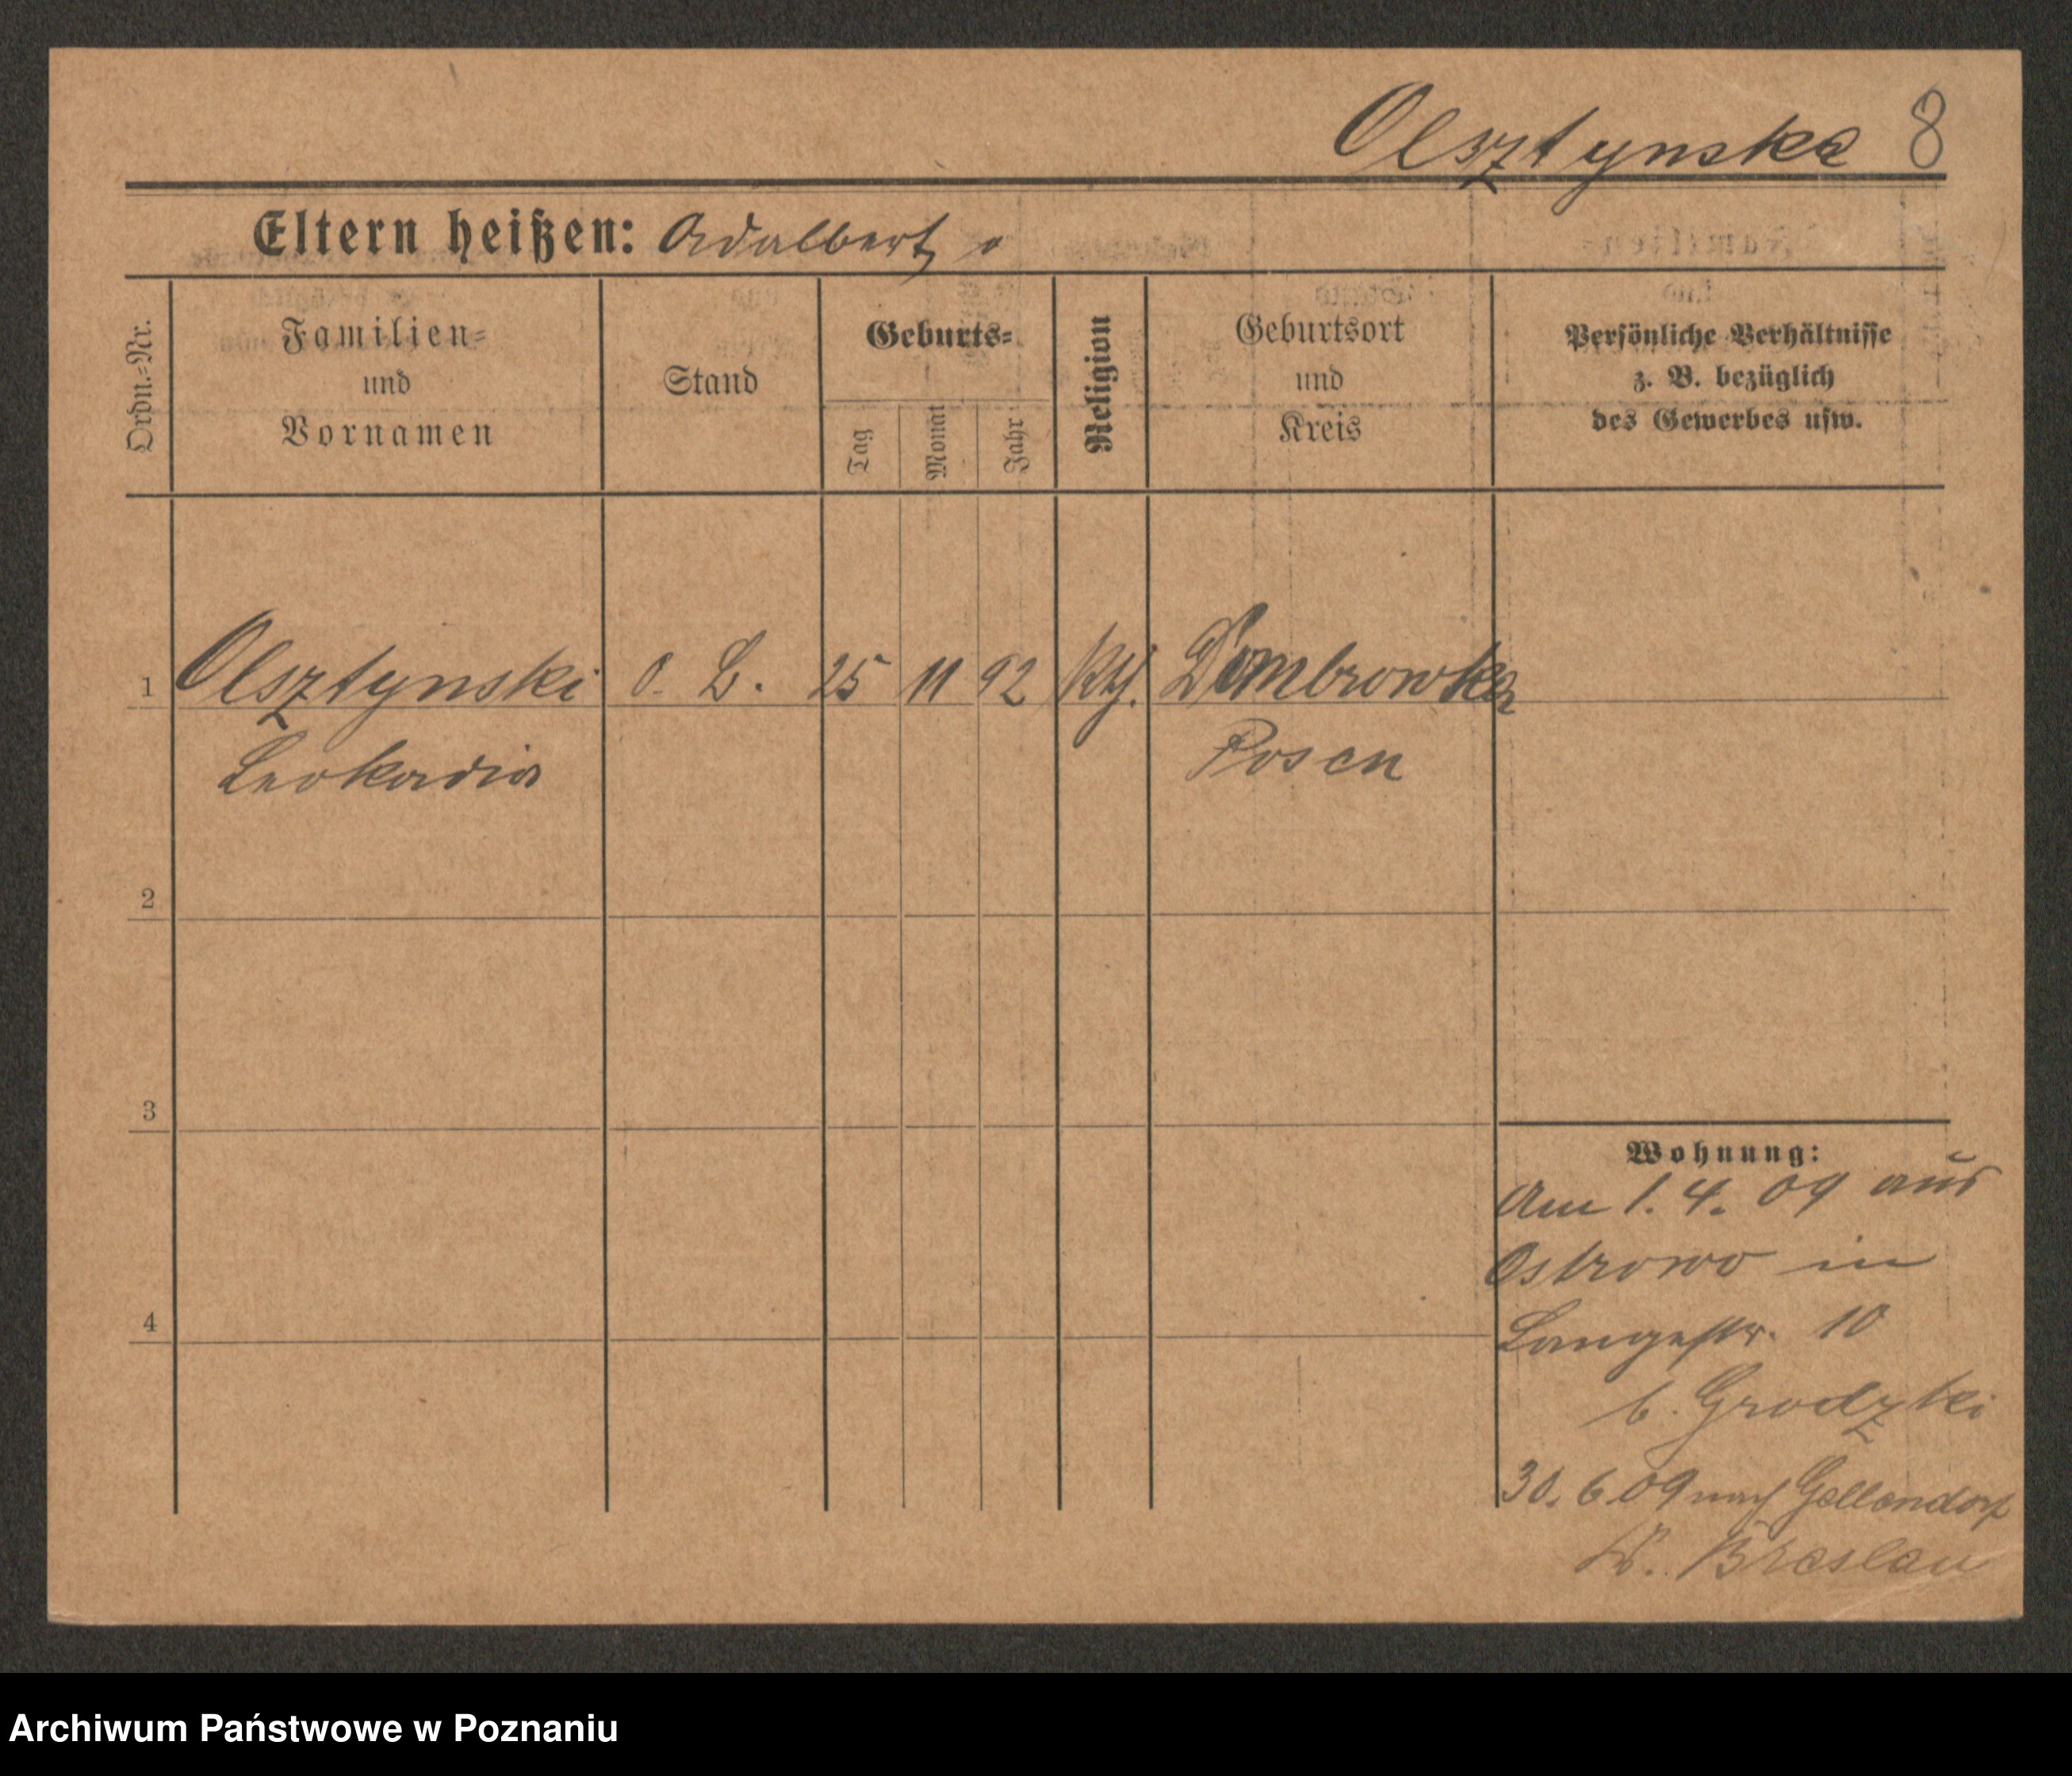 Olsztynska 8
Eltern heißen: Adalbert
Ordn.=Nr.
Familien=
und
Vornamen
Stand
Geburts=
Tag
Monat
Jahr
Religion
Geburtsort
und
Kreis
Persönliche Verhältnisse
z. B. bezüglich
des Gewerbes usw.
1 Olsztynski o. B. 25 11 92 kth. Dombrowka
Leokadia Posen
2
3
4
Wohnung:
Am 1. 4. 09 aus
Ostrowo in
Langestr. 10
b. Grodzki
30. 6. 09 nach Gellendorf
Breslau
Archiwum Państwowe w Poznaniu